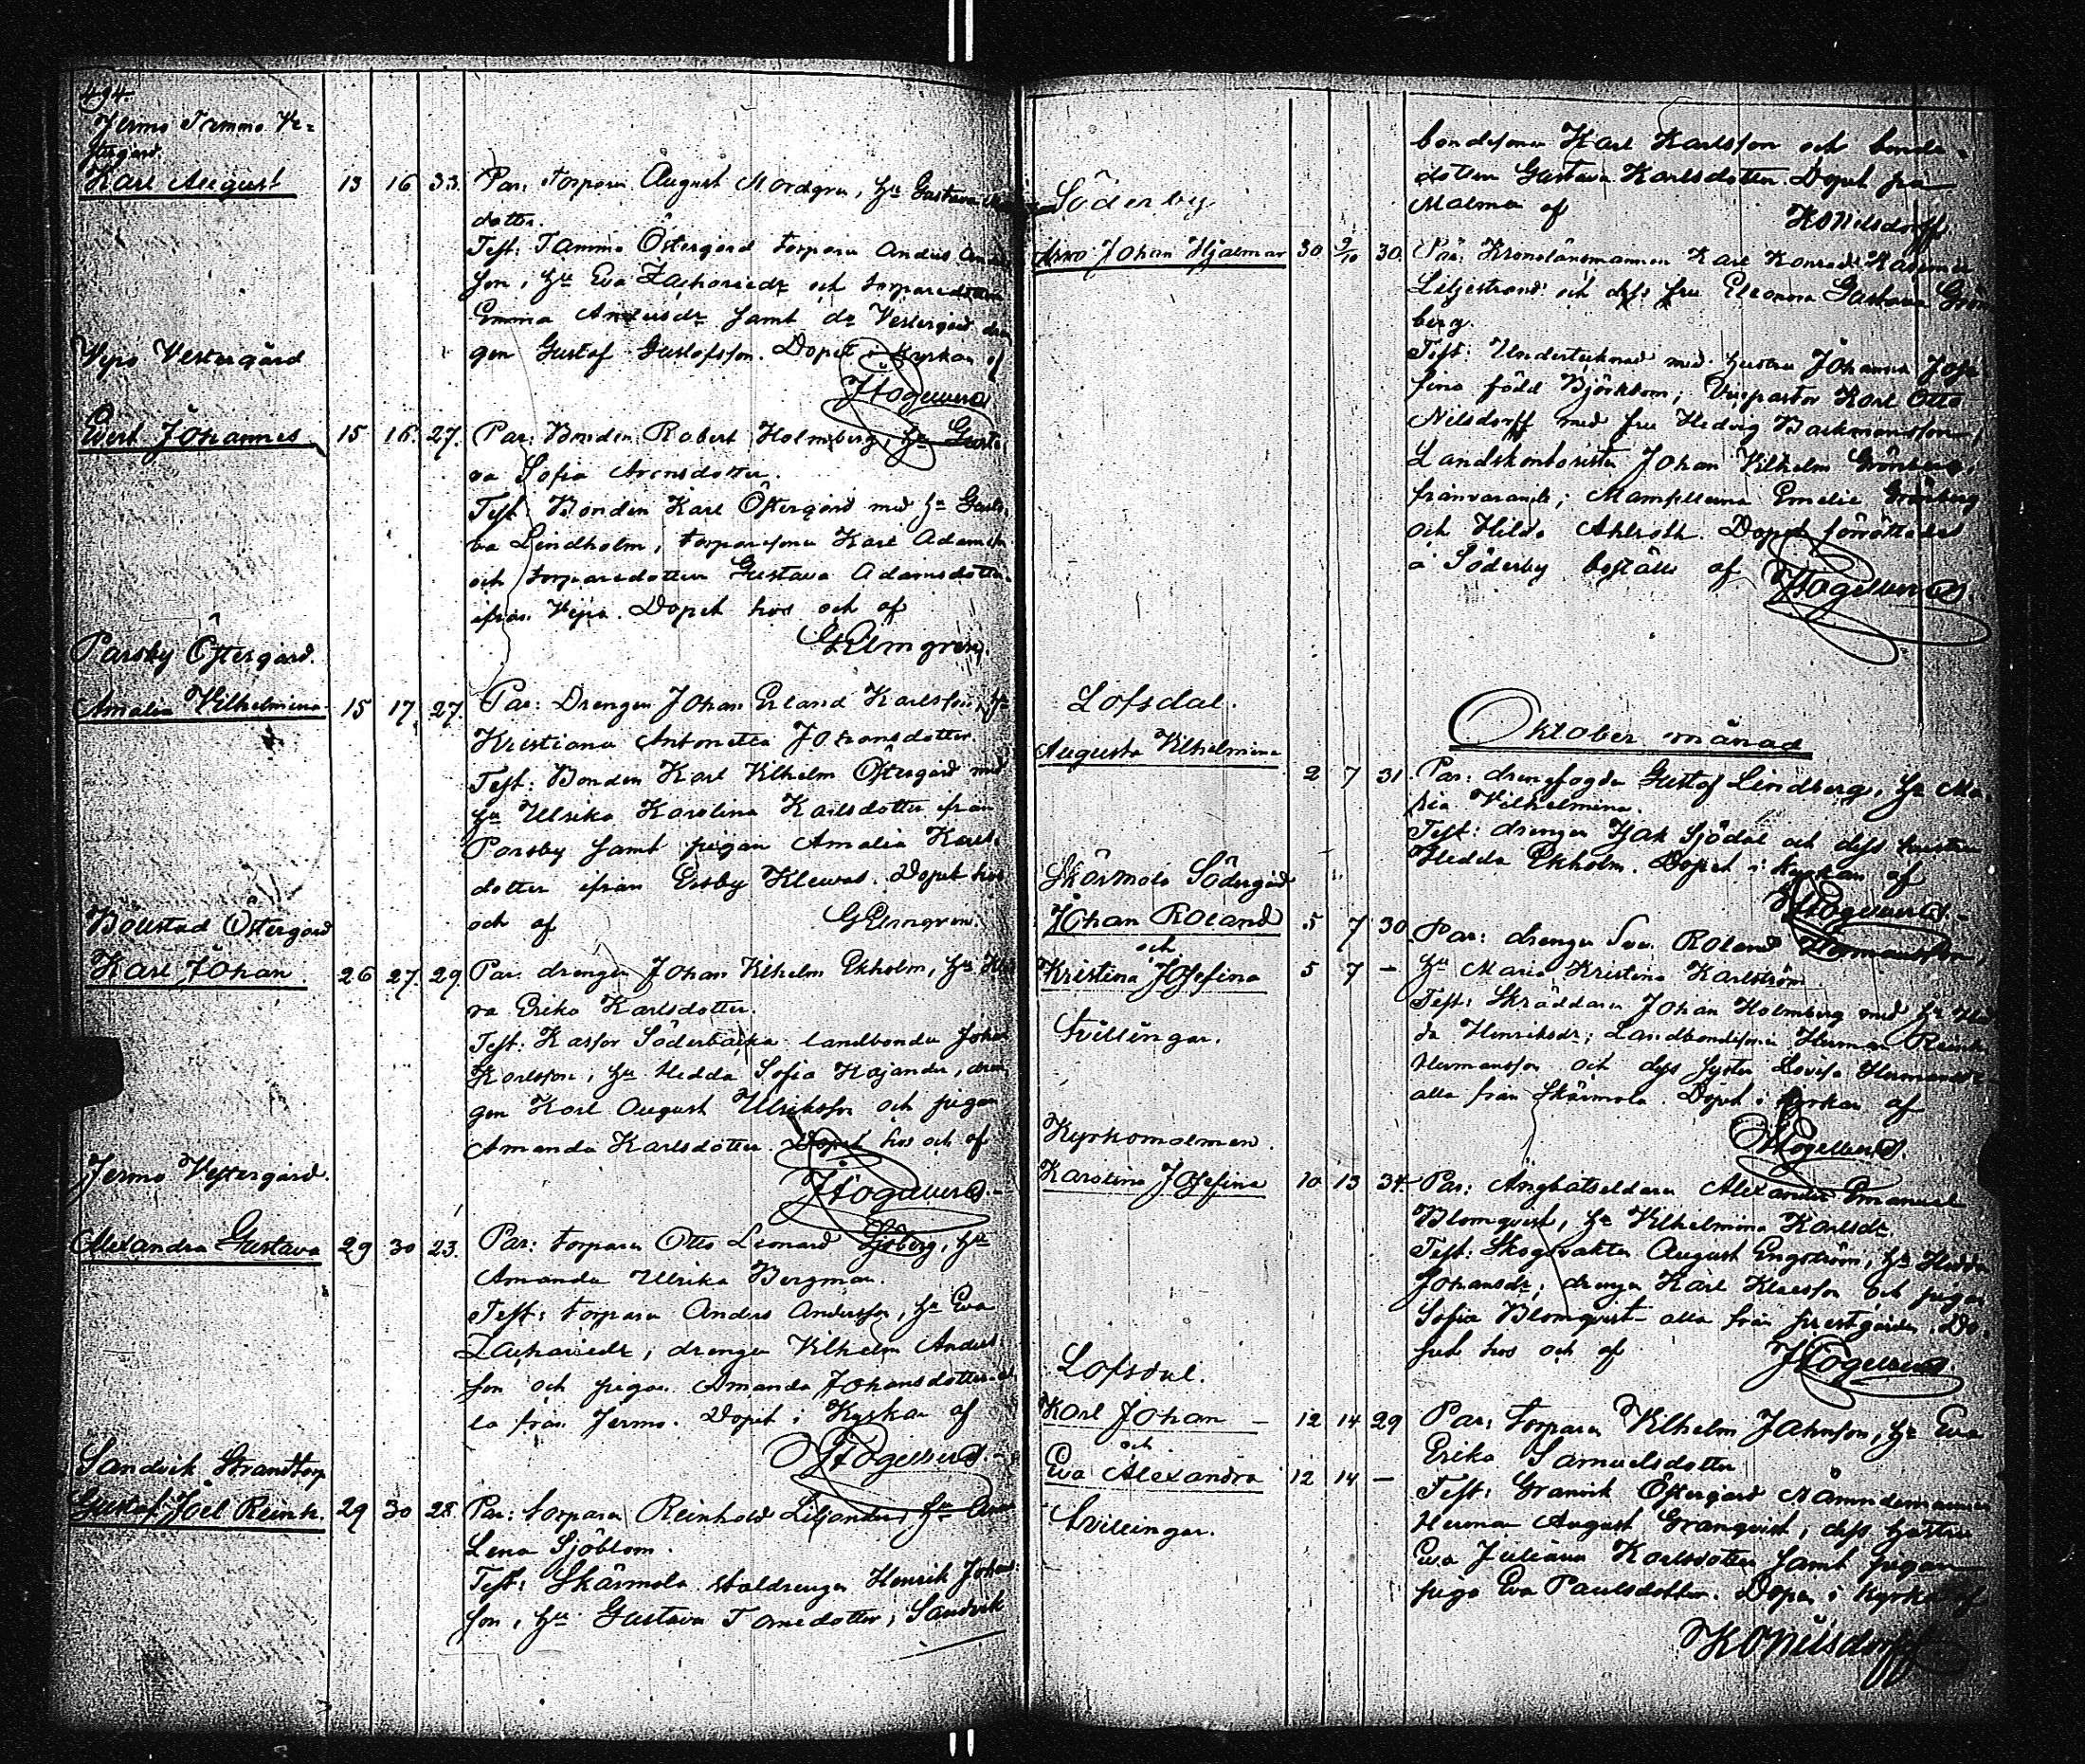 494.
Jermo Tammo Ve=
stergård.
Karl August 13 16 33. Par: torparen August Nordgren, hu Gustava
dotter.
Test: Tammo Östergård torparen Anders
son, hu Eva Zachariedr och torparedottren
Emma Andersdr samt dr Vestergård drän
gen Gustaf Gustafsson. Döpet i kyrkan af
Vepo Vestergård
Evert Johannes 15 16. 27. Par: Bonden Robert Holmberg, hu Gusta
va Sofia Arensdotter.
Test: Bonden Karl Östergård med hu Gusta
va Lindholm, torparesonen Karl Adamsson
och torparedottren Gustava Adamsdotter
ifrån Vepo. Döpet hos och af
GElmgren.
Parsby Östergård.
Amalia Vilhelmina 15 17. 27. Par: Drengen Johan Erland Karlsson, hu
Kristiana Antonetta Johansdotter
Test: Bonden Karl Vilhelm Östergård med
hu Ulrika Karolina Karlsdotter ifrån
Parsby samt pigan Amalia Karls
dotter ifrån Ersby Klewas. Döpet hos
och af GElmgren.
Böllstad Östergård
Karl Johan 26 27. 29. Par: drengen Johan Vilhelm Ekholm, hu
va Erika Karlsdotter.
Test: Kassor Söderbacka landbonden Johan
Karlsson, hu Hedda Sofia Kajander, drän
gen Karl August Ulriksson och pigan
Amanda Karlsdotter. Döpet hos och af
Jermo Vestergård.
Alexandra Gustava 29 30 23. Par: torparen Otto Leonard Sjöberg, hu
Amanda Ulrika Bergman.
Test: torparen Anders Andersson, hu Eva
Zachariedr, drengen Vilhelm Anders
son och pigan Amanda Johansdotter al
la från Jermo. Döpet i Kyrkan af
Sandvik Strandtorp
Gustaf Joel Reinh. 29 30 28. Par: torparen Reinhold Liljander, hu Anna
Lena Sjöblom.
Test: Skärmola staldrengen Henrik Johans
son, hu Gustava Tomsdotter, Sandvik
bondesonen Karl Karlsson och bonde
dottren Gustava Karlsdotter. Döpet på
Malmen af KONilsdorff
Söderby
Arvo Johan Hjalmar 30 9/10 30. Par: Kronolänsmannen Karl Konrad Kasimir
Liljestrand och dess fru Eleonora Gustava Grön
berg.
Test: Undertecknad med hustru Johanna Jose
fina född Björkbom; Vicepastor Karl Otto
Nilsdorff med fru Hedvig Backmansson;
Landskontoristen Johan Vilhelm Grönberg,
frånvarande; Mamsellerna Emelie Grönberg
och Hilda Ahlroth. Döpet förrättades
å Söderby boställe af
Lofsdal.
Oktober månad
Augusta Vilhelmina 2 7 31. Par: drengfogden Gustaf Lindberg, hu Ma
ria Vilhelmina.
Test: drengen Isak Sjödal och dess hustru
Hedda Ekholm. Döpet i Kyrkan af
Skärmola Södergård
Johan Roland 5 7 30. Par: drengen Sven Roland Hermansson,
och
Kristina Josefina 5 7 – hu Maria Kristina Karlström.
Tvillingar. Test: Skräddaren Johan Holmberg med hu Hed
da Henriksdr; Landbondesonen Herman Reinh.
Hermansson och dess syster Lovisa Hermansdr
alla från Skärmola. Döpet i Kyrkan af
Kyrkomalmen.
Karolina Josefina 10 13 34. Par: Ångbåtseldaren Alexander Emanuel
Blomqvist, hu Vilhelmina Karlsdr.
Test: Skogsvakten August Engström, hu Hedda
Johansdr, drengen Karl Klaesson och pigan
Sofia Blomqvist alla från prestgården. Dö
pet hos och af
Lofsdal.
Karl Johan – 12 14 29 Par: torparen Vilhelm Jahnson, hu Eva
och
Erika Samuelsdotter
Eva Alexandra 12 14 – Test: Granvik Östergård Nämndemannen
Tvillingar. Herman August Granqvist, dess hustru
Eva Juliana Karlsdotter samt pigan
piga Eva Paulsdotter. Döpet i Kyrkan af
KONilsdorff